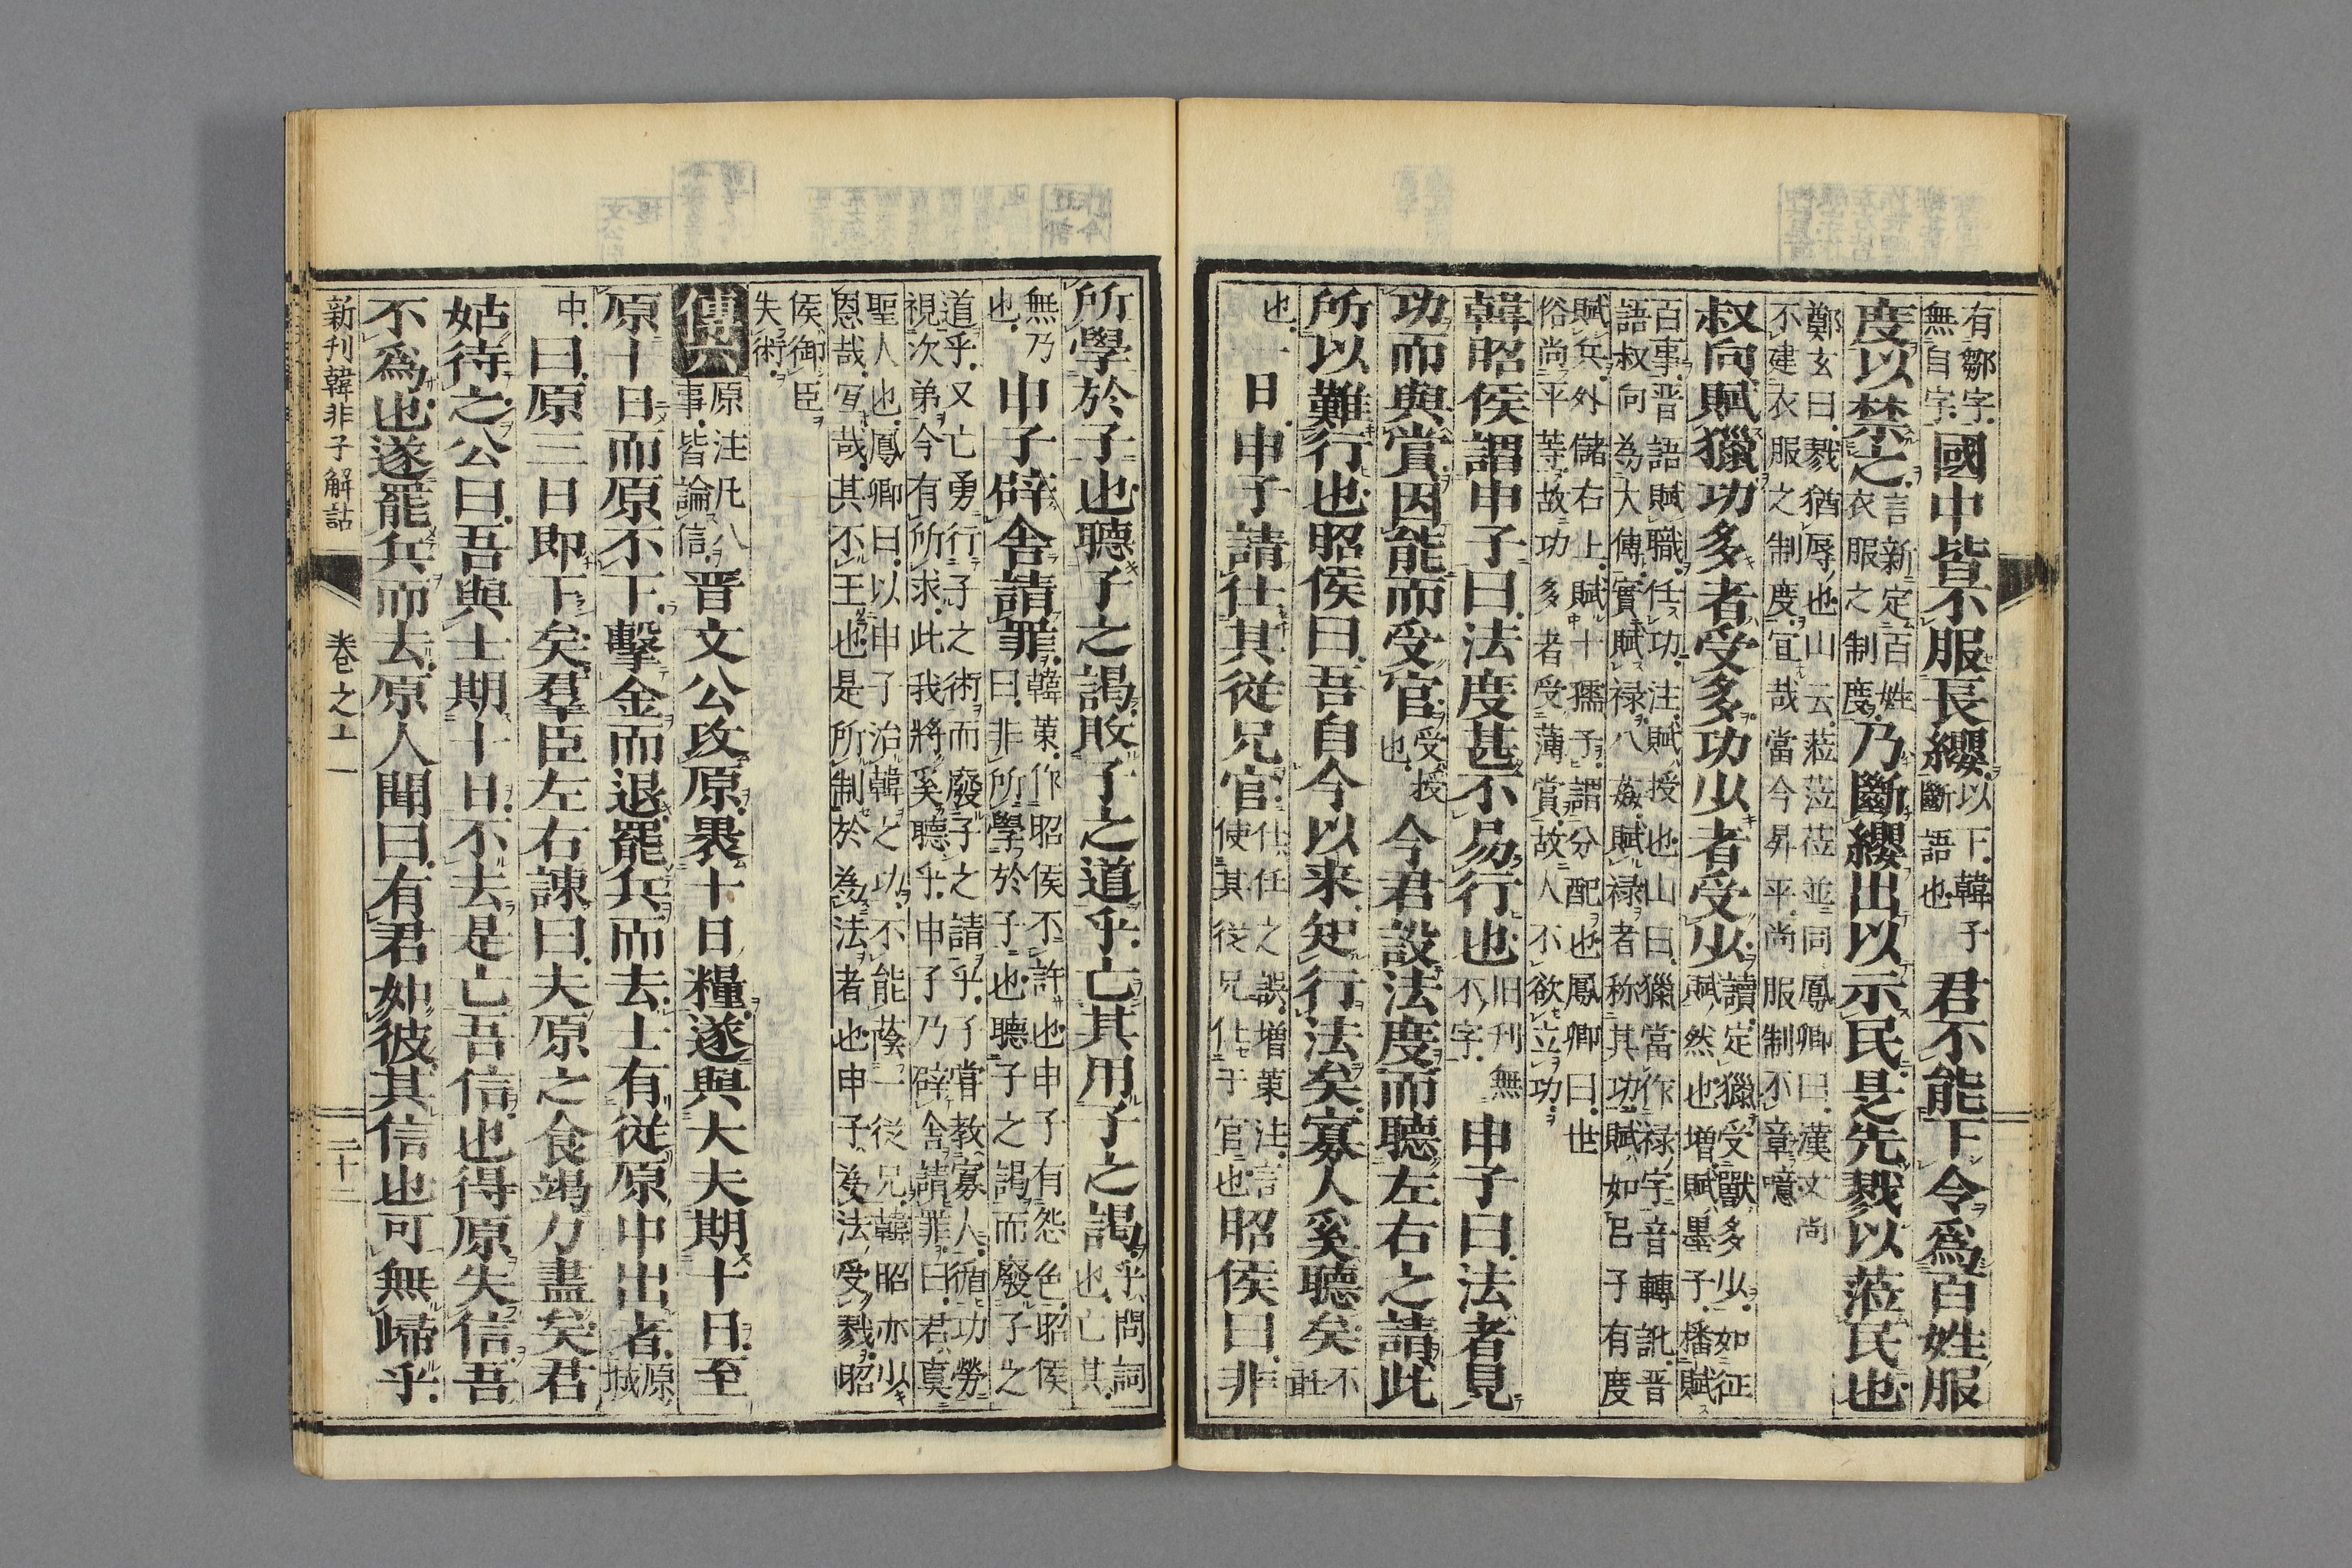 有鄒字.無自字.國中皆不服長纓.以下.韓子斷語也.君不能下令爲百姓服
度以禁之.言新定百姓衣服之制度.乃斷纓出以示民.是先戮以蒞民也.
鄭玄曰.戮猶辱也山云.蒞蒞莅並同鳳卿曰.漢文尚不建衣服之制度.宜哉當今昇平.尚服制不章噫
叔向賦獵.功多者受多.功少者受少.讀定獵受獸多少.如征賦然也増.賦.墨子.播賦
百事.晋語賦職任功.注.賦授也山曰.獵當作禄.字音轉訛.晋語叔向為大傅.實賦禄.八姦.賦禄者称其功.賦如吕子有度
賦兵.外儲右上.賦十孺子.謂分配也鳳卿曰.世俗尚平等.故功多者受薄賞.故人不欲立功.
韓昭侯謂申子曰.法度甚不易行也.旧刊無不字.申子曰.法者見
功而與賞.因能而受官.受授也.今君設法度而聽左右之請.此
所以難行也.昭侯曰.吾自今以来知行法矣.寡人奚聽矣.不敢
也.一日.申子請仕其從兄官.仕任之誤.増.策注.言使其從兄仕于官也.昭侯曰.非
所學於子也.聽子之謁敗子之道乎.亡其用子之謁.乎.問詞也.亡其.
無乃也.申子辟舍請罪.韓策.作昭侯不許也.申子有怨色.昭侯曰.非所學於子也.聽子之謁.而廢子之
道乎.又亡勇行子之術.而廢子之請乎.子嘗教寡人.循功勞視次弟.今有所求.此我將奚聽乎.申子乃辟舍請罪.曰.君真
聖人也.鳳卿曰.以申子治韓之功.不能蔭一從兄.韓昭亦少恩哉.宜哉.其不王也.是所制於為法者也.申子為法受戮.昭
侯御臣失術.
傳六原注.凡八事.皆論信.晋文公攻原.褁十日糧.遂與大夫期十日.至
原十日.而原不下.擊金而退.罷兵而去.士有從原中出者.原城
中.曰.原三日即下矣.羣臣左右諫曰.夫原之食竭力盡矣.君
姑待之.公曰.吾與士期十日.不去.是亡吾信也.得原失信.吾
不爲也.遂罷兵而去.原人聞曰.有君如彼其信也.可無歸乎.
新刊韓非子解詁　卷之十一　二十二